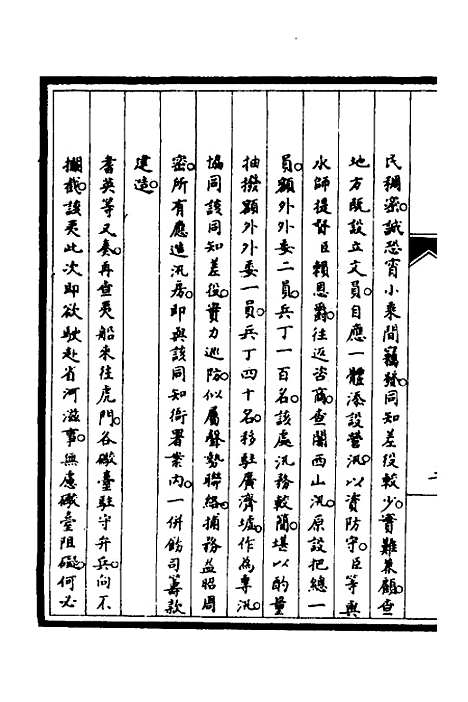 民稠密。誠恐宵小乘間竊發。同知差役較少。實難兼顧。查
地方既設立文員。自應一體添設營汛。以資防守。臣等與
水師提督臣賴恩爵往返咨商。查關西山汛。原設把總一
員。額外外委二員。兵丁一百名。該處汛務較簡。堪以酌量
抽撥額外外委一員。兵丁四十名。移駐廣濟墟。作為專汛。
協同該同知差役。實力巡防。似屬聲勢聯絡。捕務益昭周
密。所有應造汛房。即與該同知衙署案內。一併飭司籌款
建造。
耆英等又奏。再查夷船來往虎門。各礮臺駐守弁兵。向不
攔截。該夷此次即欲駛赴省河滋事。無慮礮臺阻礙。何必